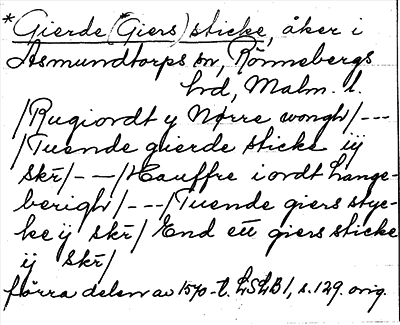 *Gierde (Giers) sticke, åker i
Asmundtorps sn, Rönnebergs
hd, Malm. l.
/Rugiordt y Nørre wongh/---
/Tuende gierde sticke iÿ
skr̄/---/Hauffre iordt hange-
berigh/---/Tuende giers styc-
ke ÿ skr̄/ End ett giers sticke
iÿ skr̄/
förra delen av 1570-t. LSLB1, s. 129. orig.